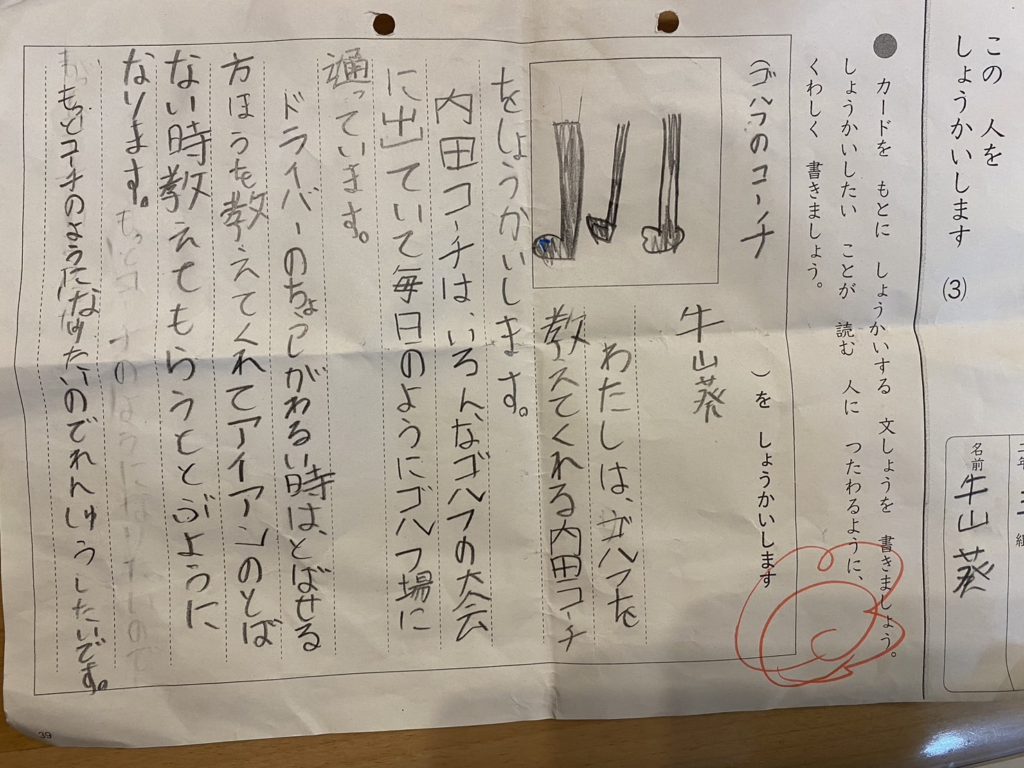 この 人を
しょうかいします (3)
二年 二 組
名前 牛山 葵
● カードを もとに しょうかいする 文しょうを 書きましょう。
しょうかいしたい ことが 読む 人に つたわるように、
くわしく 書きましょう。
(ゴルフのコーチ )を しょうかいします
牛山葵
わたしは、ゴルフを
教えてくれる内田コーチ
をしょうかいします。
内田コーチは、いろんなゴルフの大会
に出ていて毎日のようにゴルフ場に
通っています。
ドライバーのちょうしがわるい時は、とばせる
方ほうを教えてくれてアイアンのとば
ない時教えてもらうととぶように
なります。
もっとコーチのようになりたいのでれんしゅうしたいです。
39